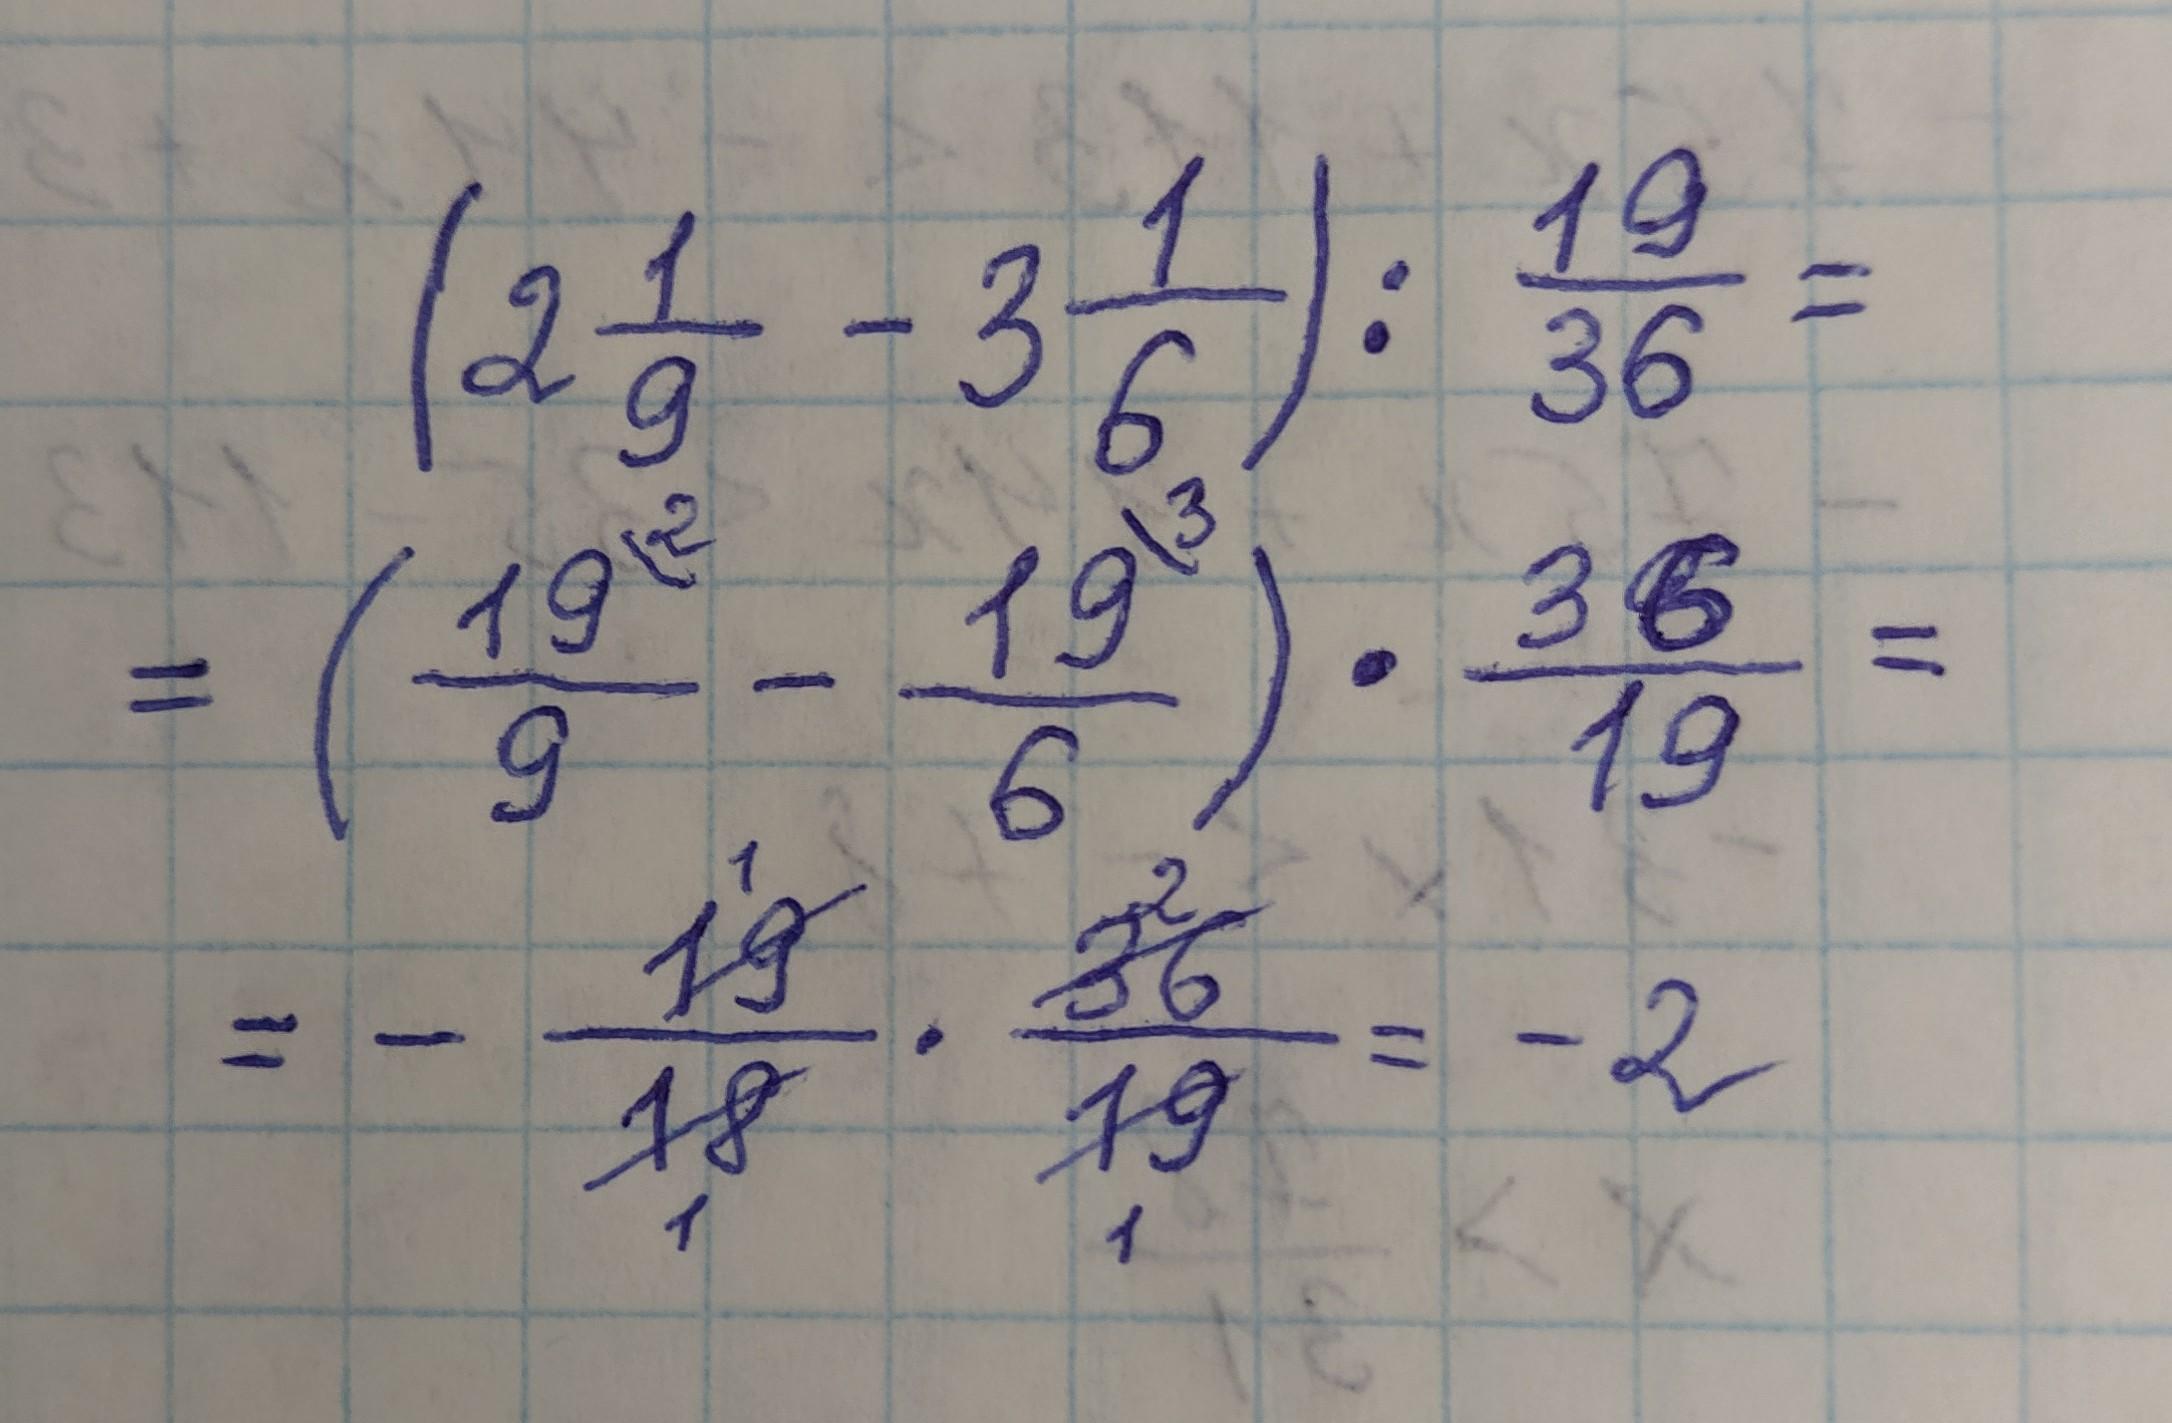 (2 1/9 - 3 1/6) : 19/36 =
= (19\2/9 - 19\3/6) · 36/19 =
= - 19/18 · 36/19 = -2